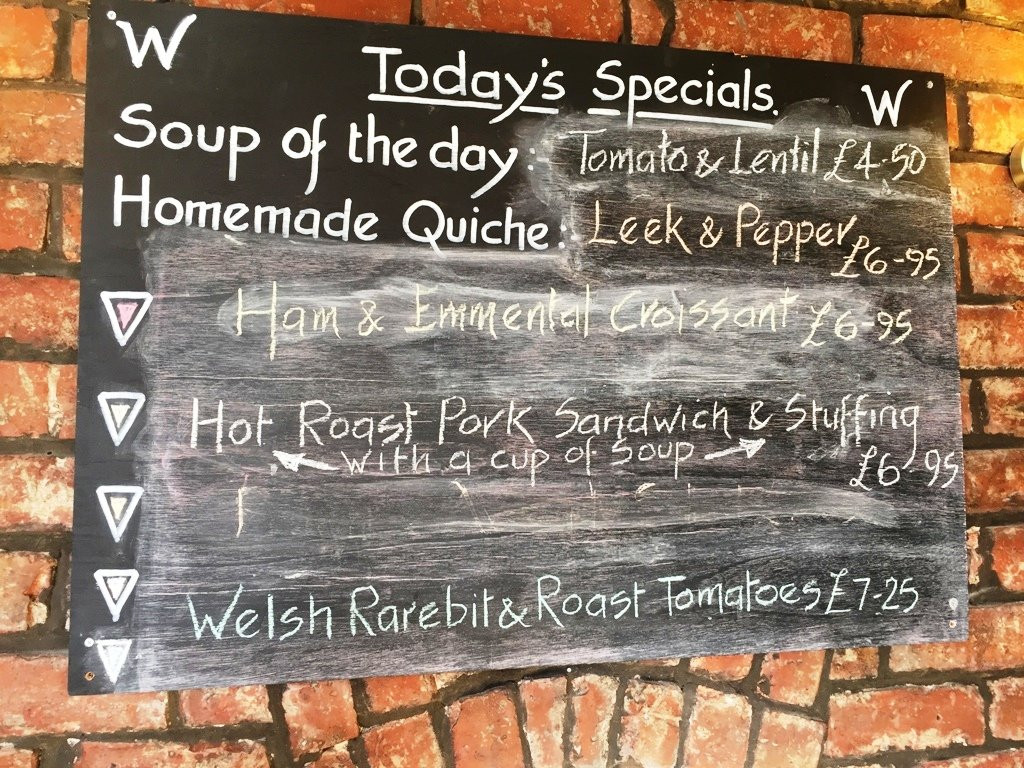 W
Today's Specials.
W
Soup of the day: Tomato & Lentil £4-50
Homemade Quiche: Leek & Pepper £6-95
Ham & Emmental Croissant £6-95
Hot Roast Pork Sandwich & Stuffing
with a cup of soup £6-95
Welsh Rarebit & Roast Tomatoes £7-25